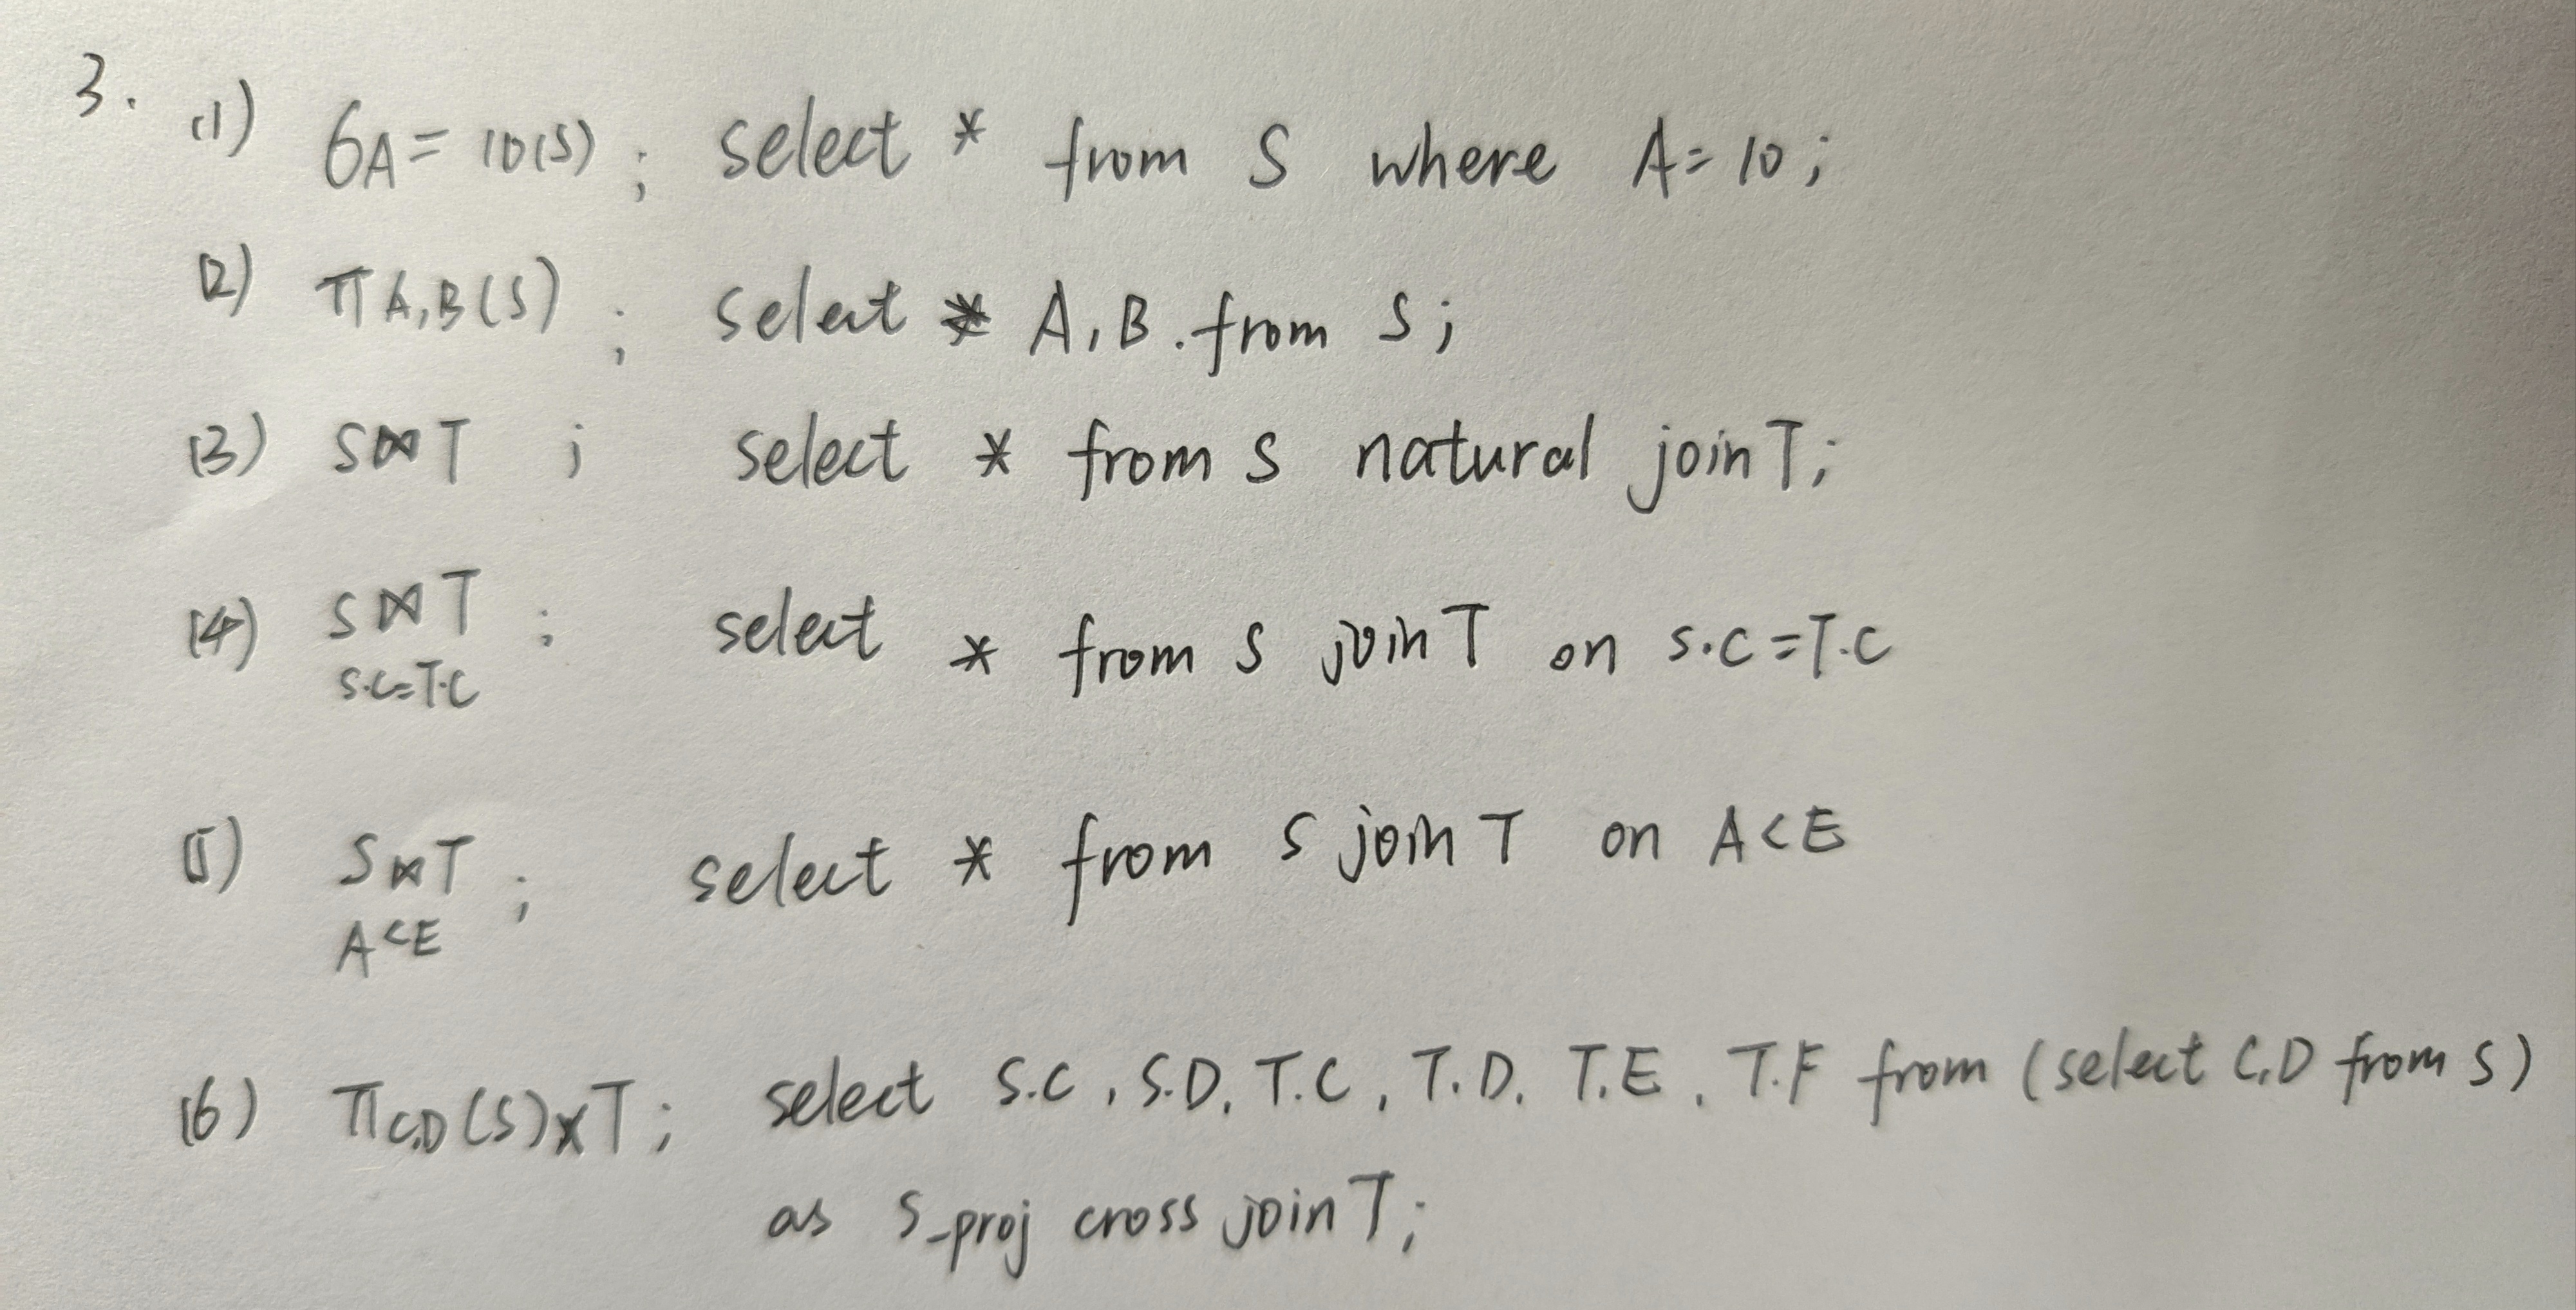 3. (1) σA=10(S); select * from S where A=10;
(2) πA,B(S); select A,B.from S;
(3) S⋈T ; select * from S natural join T;
(4) S⋈T ; select * from S join T on S.C=T.C
S.C=T.C
(5) S⋈T ; select * from S join T on A<E
A<E
(6) πC,D(S)×T; select S.C, S.D, T.C, T.D, T.E, T.F from (select C,D from S)
as S_proj cross join T;